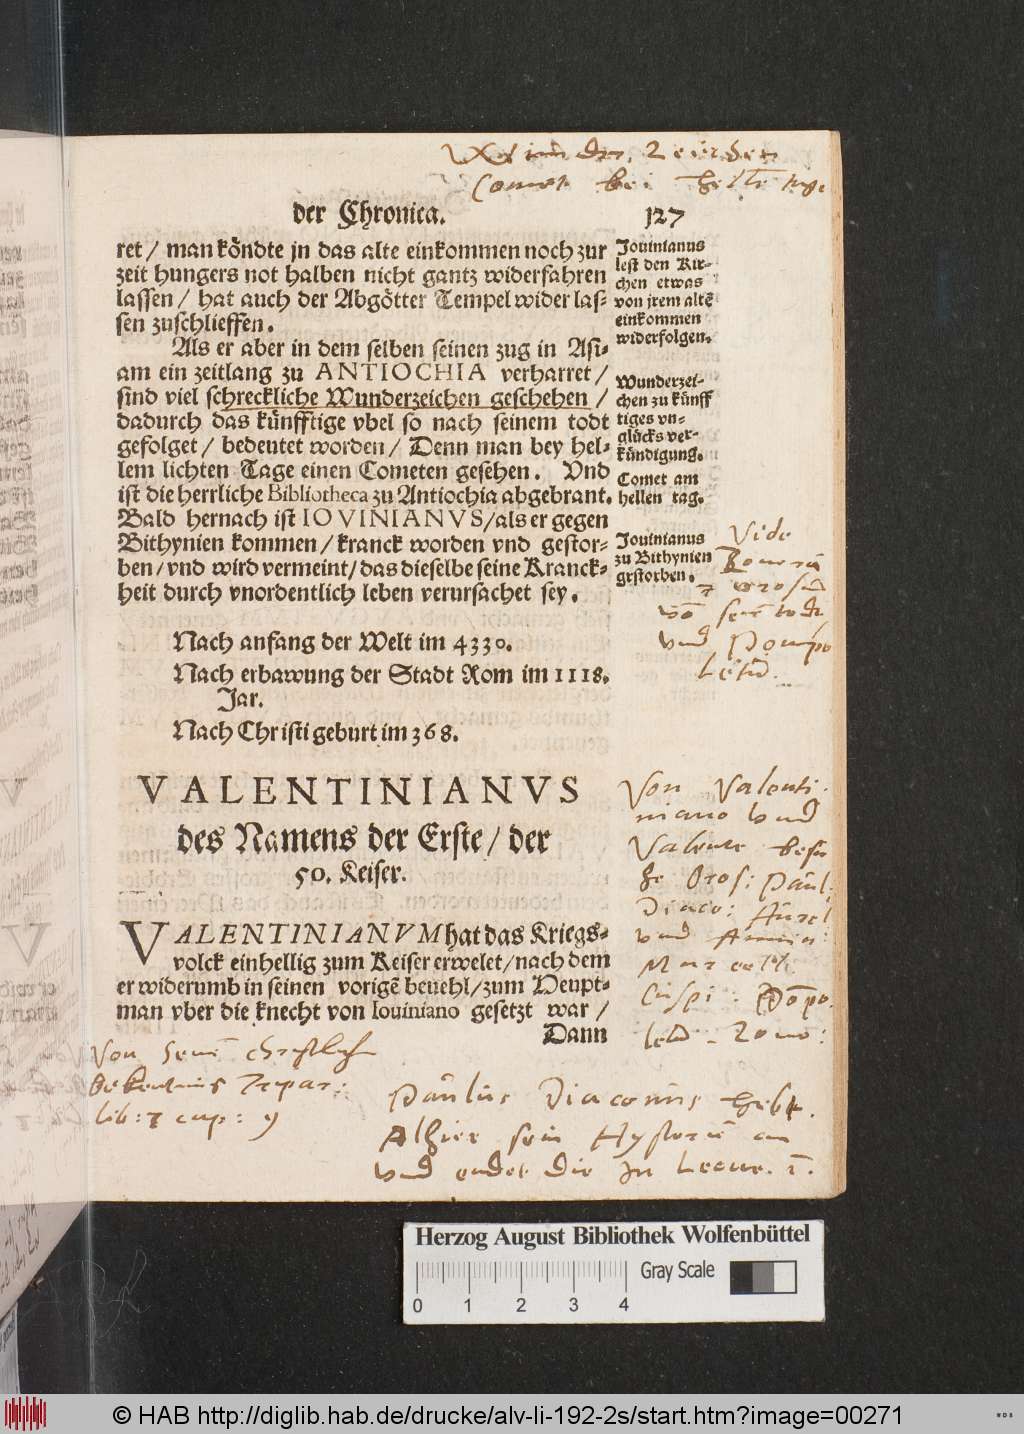 der Chronica. 127
ret / man köndte jn das alte einkommen noch zur
zeit hungers not halben nicht gantz widerfahren
lassen / hat auch der Abgötter Tempel wider las-
sen zuschlieffen.
Jouinianus
lest den Kir-
chen etwas
von jrem altē
einkommen
widerfolgen.
Als er aber in dem selben seinen zug in Asi-
am ein zeitlang zu ANTIOCHIA verharret /
sind viel schreckliche Wunderzeichen geschehen /
dadurch das künfftige vbel so nach seinem todt
gefolget / bedeutet worden / Denn man bey hel-
lem lichten Tage einen Cometen gesehen. Vnd
ist die herrliche Bibliotheca zu Antiochia abgebrant.
Bald hernach ist IOVINIANVS / als er gegen
Bithynien kommen / kranck worden vnd gestor-
ben / vnd wird vermeint / das dieselbe seine Kranck-
heit durch vnordentlich leben verursachet sey.
Wunderzei-
chen zu künff
tiges vn-
glücks ver-
kündigung.
Comet am
hellen tag.
Jouinianus
zu Bithynien
gestorben.
Vide
vnd Pompo
Letū.
Nach anfang der Welt im 4330.
Nach erbawung der Stadt Rom im 1118.
Jar.
Nach Christi geburt im 368.
VALENTINIANVS
des Namens der Erste / der
50. Keiser.
VALENTINIANVM hat das Kriegs-
volck einhellig zum Keiser erwelet / nach dem
er widerumb in seinen vorigē beuehl / zum Heupt-
man vber die knecht von Iouiniano gesetzt war /
Dann
Von Valenti-
niano vnd
Valente besi
he Oros: Paul:
Diaco: Aurel
vnd Ammia:
Marcelli
Von seinē christlich
Bekentnis Tripar:
lib: 7 cap: 9
Paulus Diaconus hebt
Alhier sein Hystoriē an
vnd endet die In Leone. 1.
Herzog August Bibliothek Wolfenbüttel
Gray Scale
0 1 2 3 4
© HAB http://diglib.hab.de/drucke/alv-li-192-2s/start.htm?image=00271